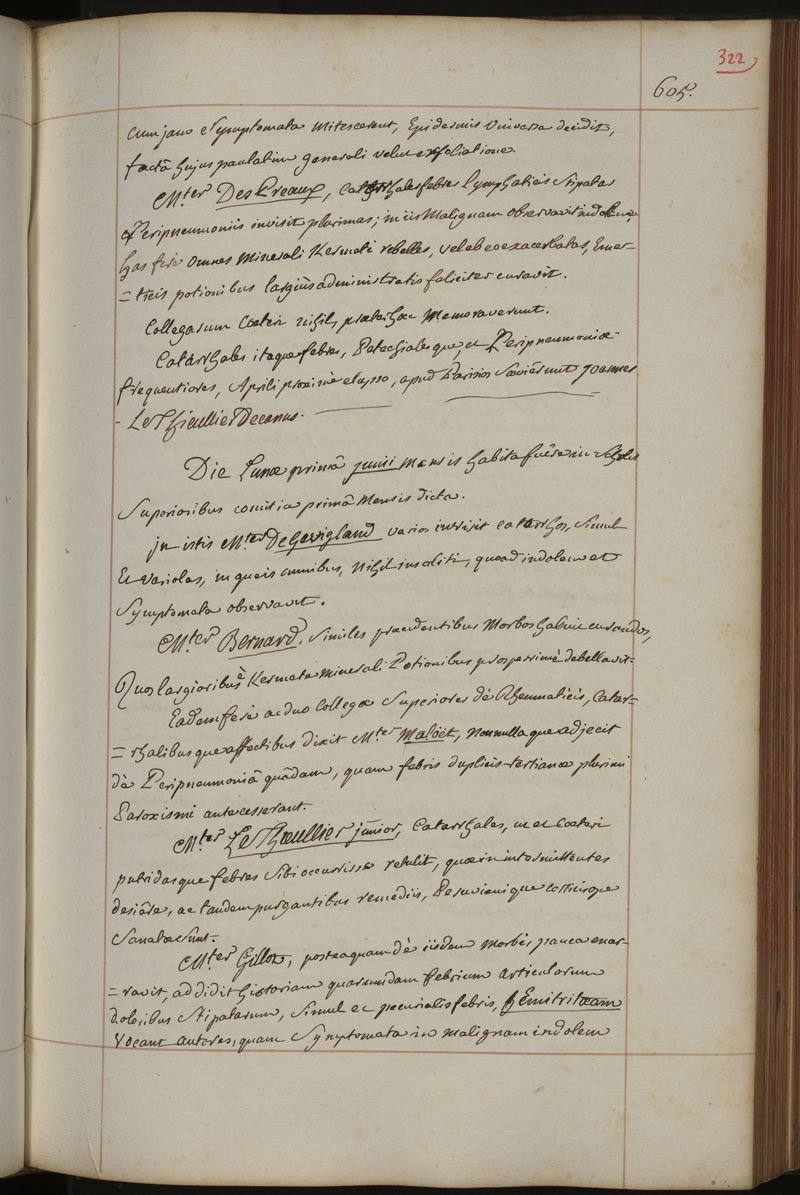 322
605.
Cum jam Symptomata mitescerent, Epidermis Universa decidit,
factâ hujus paulatim generali velut exfoliatione.
Mter Des Preaux, catarrhales febres lymphaticis stipatas
Peripneumoniis invisit plurimas; in iis Malignam observavit indolem,
has ferè omnes Minerali Kermeti rebelles, vel ab eo exacerbatas, Eme-
=ticis potionibus largiùs administratis feliciter curavit.
Collegarum Coeteri nihil praeter haec Memoraverunt.
Catarrhales itaque febres, Petechiales que, et Peripneumoniae
frequentiores, Aprili proximè elapso, apud Parisios Saevierunt Joannes
- Le Thieullier Decanus.
Die Lunae primâ junii Mensis habita fuêre in Scholis
Superioribus comitia primâ Mensis dicta.
jn istis Mter De Gevigland varios invisit catarrhos, Simul
Et variolas, in queis omnibus, Nihil insoliti, quoad indolem et
Symptomata observavit.
Mter Bernard, Similes praecedentibus Morbos habuit curandos,
Quos largioribus è Kermete minerali Potionibus prosperrimè debellavit.
Eadem ferè ac duo Collegae Superiores dè Rheumaticis, Catar-
=rhalibus que affectibus dixit Mter Maloët, Nonnulla que adjecit
dè Peripneumoniâ quâdam, quam febris duplicis-tertianae plurimi
Paroxismi antecesserant.
Mter Le Thieullier junior, Catarrhales, ut et Coeteri
putridasque febres Sibi occurrisse retulit, quae in intermittentes
desiêre, ac tandem purgantibus remediis, Peruviani que corticis ope
Sanatae Sunt.
Mter Gillot, posteaquam dè iisdem Morbis pauca enar-
=ravit, addidit historiam quarumdam febrium articulorum
doloribus Stipatarum, Simul ac febris, hEmitritaeam
Vocant autores, quam Symptomata in malignam indolem